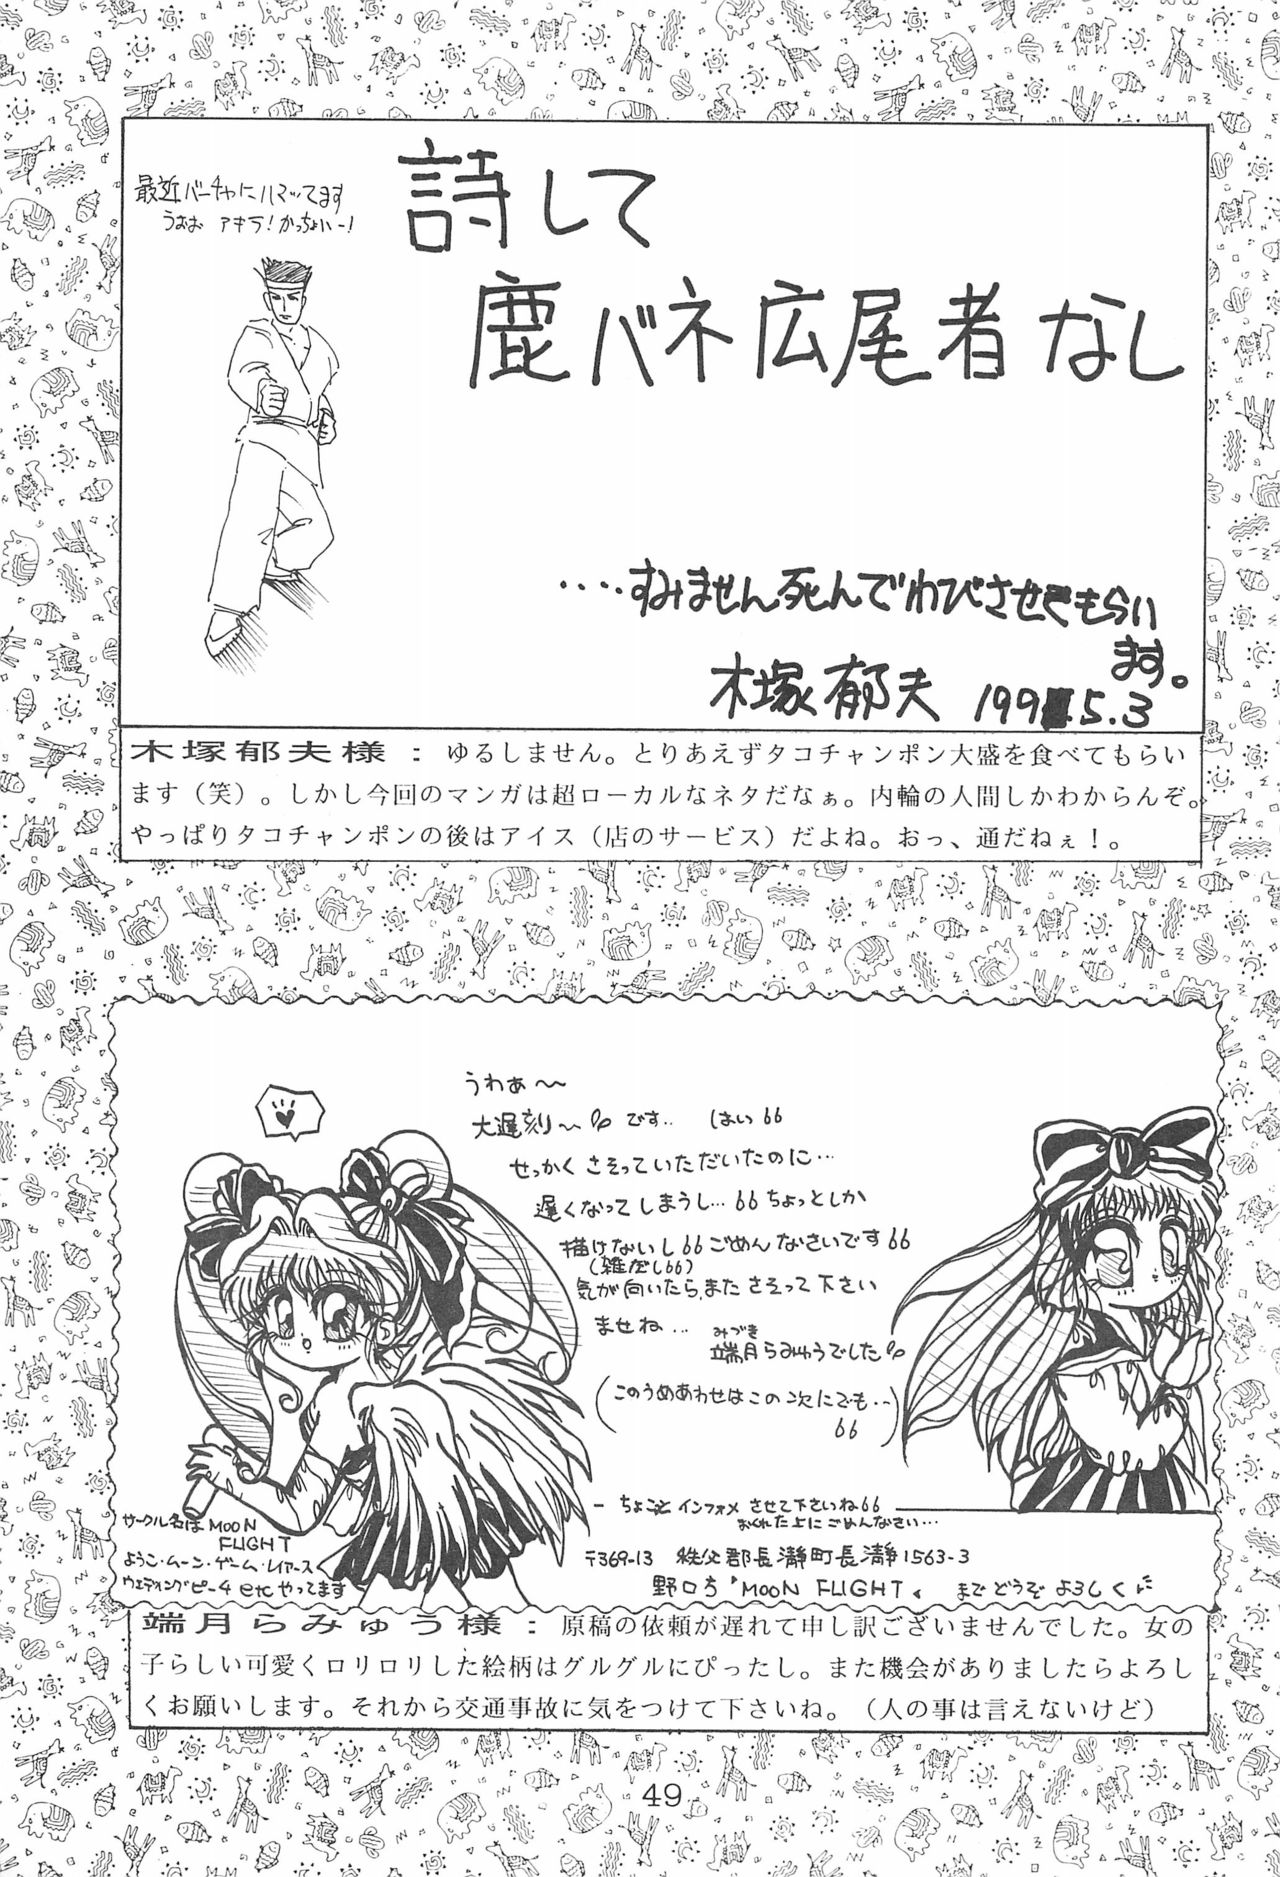 最近バーチャにハマッてます
うおお アキラ!かっちょいー!
詩して
鹿バネ広尾者なし
····すみません死んでわびさせてもらい
ます。
木塚郁夫 199 .5.3
木塚郁夫様:ゆるしません。とりあえずタコチャンポン大盛を食べてもらい
ます(笑)。しかし今回のマンガは超ローカルなネタだなぁ。内輪の人間しかわからんぞ。
やっぱりタコチャンポンの後はアイス(店のサービス)だよね。おっ、通だねぇ!。
うわぁ〜
大遅刻〜です.. はい
せっかく さそっていただいたのに…
遅くなってしまうし… ちょっとしか
描けないし ごめんなさいです
(雑だし)
気が向いたら、また さそって下さい
ませね…
みづき
端月らみゅうでした
(このうめあわせはこの次にでも…)
ちょこっと インフォメ させて下さいね
おくれた上にごめんなさい…
サークル名は MOON
FLIGHT
ようこ・ムーン・ゲーム・レイアース
ウェディングピーチ etc やってます
〒369-13 秩父郡長瀞町長瀞1563-3
野口方 「MOON FLIGHT」 まで どうぞ よろしく
端月らみゅう様:原稿の依頼が遅れて申し訳ございませんでした。女の
子らしい可愛くロリロリした絵柄はグルグルにぴったし。また機会がありましたらよろし
くお願いします。それから交通事故に気をつけて下さいね。(人の事は言えないけど)
49